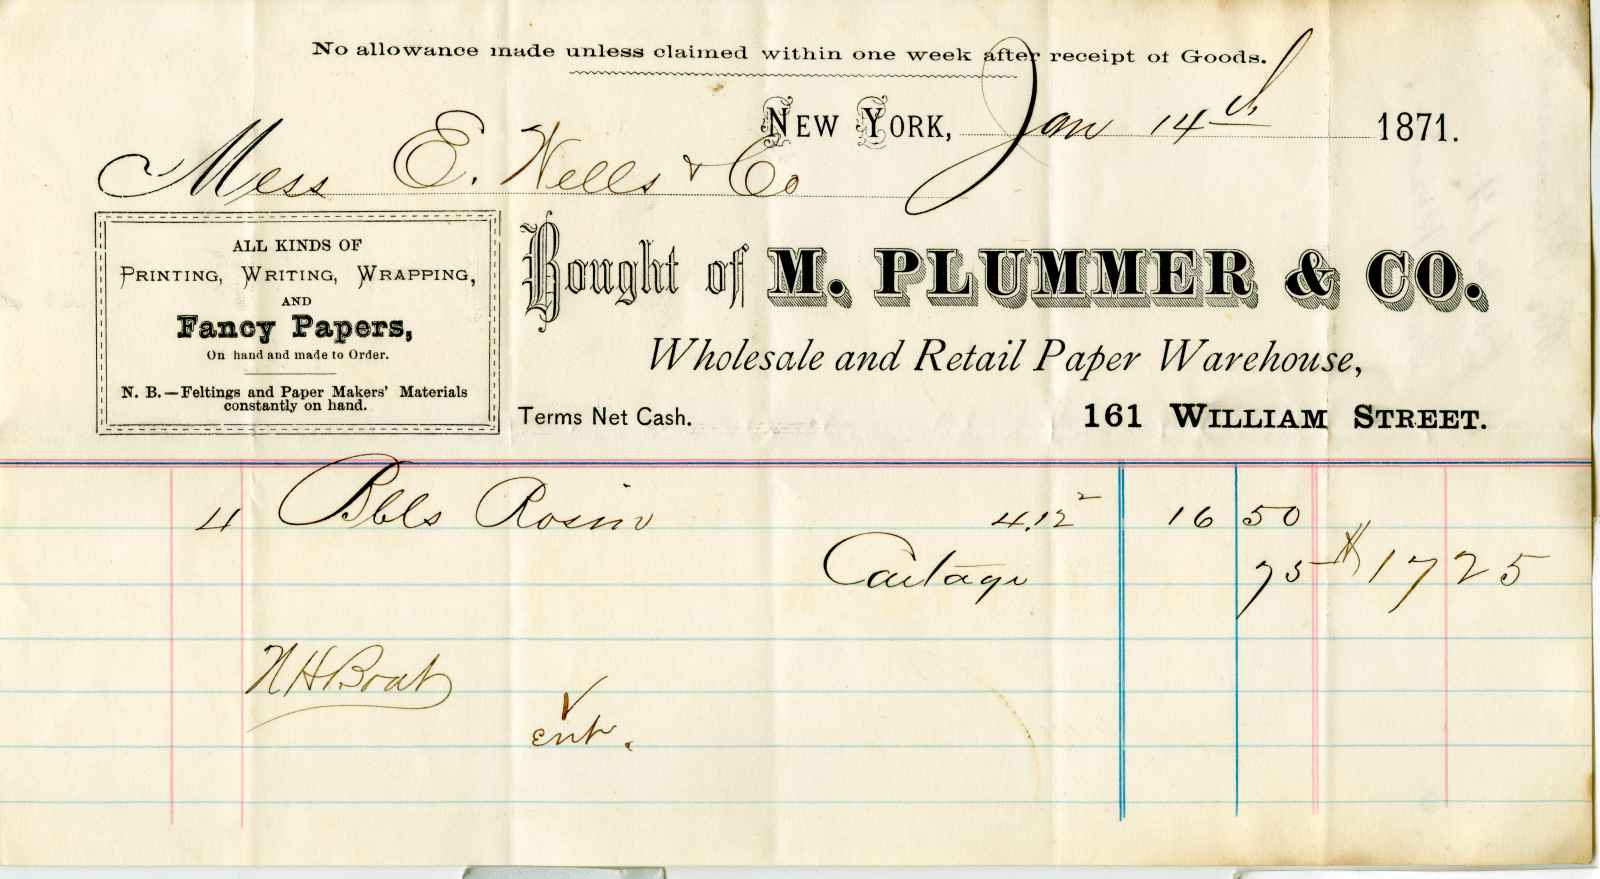 No allowance made unless claimed within one week after receipt of Goods.
New York, Jan 14th 1871.
Mess E. Wells & Co
ALL KINDS OF
Printing, Writing, Wrapping,
AND
Fancy Papers,
On hand and made to Order.
N. B.—Feltings and Paper Makers' Materials
constantly on hand.
Bought of M. PLUMMER & CO.
Wholesale and Retail Paper Warehouse,
Terms Net Cash. 161 WILLIAM STREET.
4 Bbls Rosin 4.12 2 16 50
Cartage 75 $17 25
N H Boat
ent.